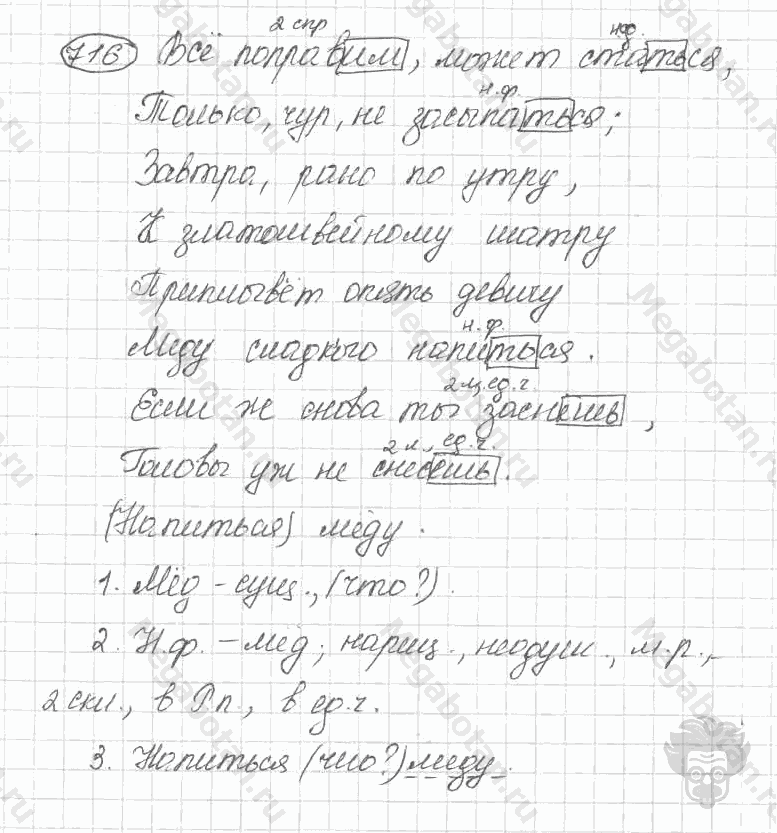 2 спр н.ф.
716 Всё поправим, может статься,
н.ф.
Только, чур, не засыпаться;
Завтра, рано по утру,
К златошвейному шатру
Приплывёт опять девичу
н.ф.
Меду сладкого напиться.
2 л, ед. ч.
Если ж снова ты заснешь,
2 л., ед. ч.
Головы уж не снесешь.
(Напиться) мёду.
1. Мёд - сущ., (что?).
2. Н.ф. - мёд; нариц., неодуш., м.р.,
2 скл., в Рп., в ед.ч.
3. Напиться (что?) меду.
Megabotan.ru